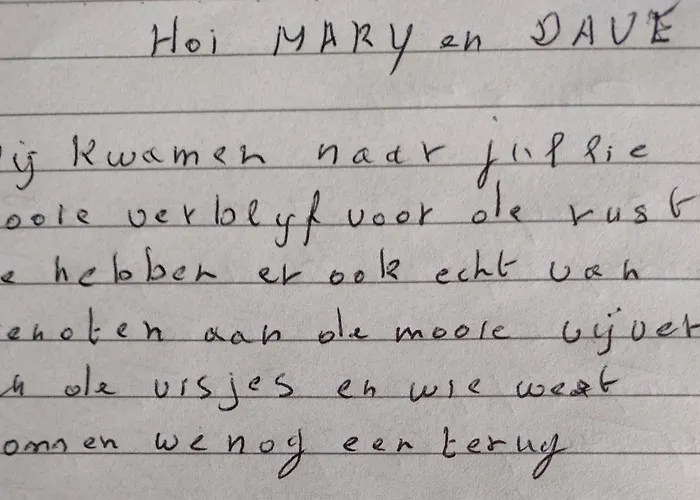 Hoi MARY en DAVE
ij kwamen naar jullie
ooie verblyf voor de rust
e hebben er ook echt van
enoten aan de mooie vijver
n de visjes en wie weet
omn en we nog een terug